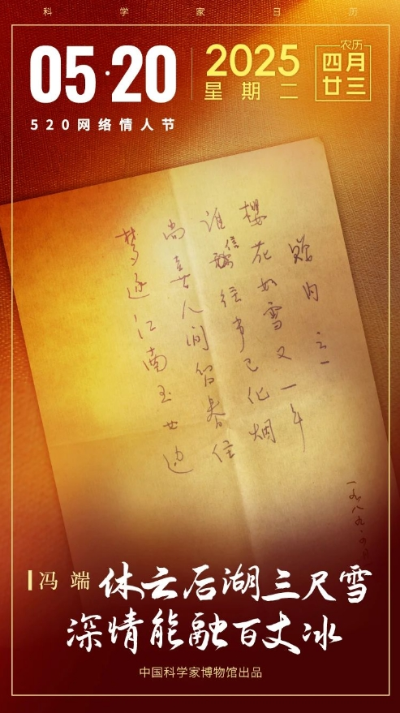 科学家日历
05·20
2025
星期二
农历
四月
廿三
520网络情人节
赠内之一
樱花如雪又一年
谁信往事已化烟
尚喜人间留春住
梦逐江南玉女边
一九八九
冯端
休云后湖三尺雪
深情能融百丈冰
中国科学家博物馆出品